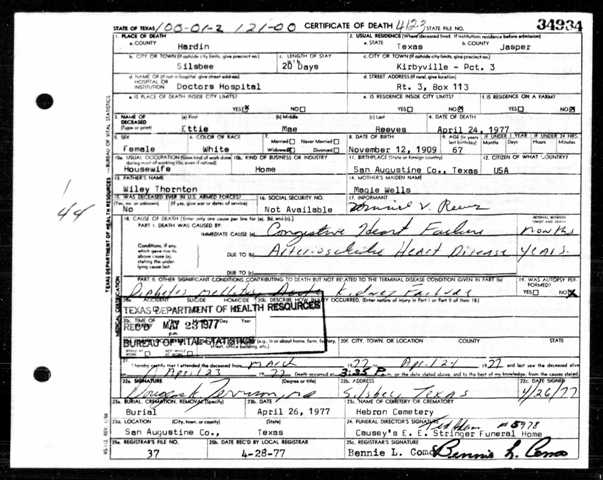 STATE OF TEXAS 100-01-2 121-00 CERTIFICATE OF DEATH 4123 STATE FILE NO. 34934
1. PLACE OF DEATH 2. USUAL RESIDENCE (Where deceased lived. If institution: residence before admission)
a. COUNTY Hardin a. STATE Texas b. COUNTY Jasper
b. CITY OR TOWN (If outside city limits, give precinct no.) Silsbee c. LENGTH OF STAY 20 Days c. CITY OR TOWN (If outside city limits, give precinct no.) Kirbyville - Pct. 3
d. NAME OF (If not in hospital, give street address) HOSPITAL OR INSTITUTION Doctors Hospital d. STREET ADDRESS Rt. 3, Box 113
e. IS PLACE OF DEATH INSIDE CITY LIMITS? YES NO e. IS RESIDENCE INSIDE CITY LIMITS? YES NO f. IS RESIDENCE ON A FARM? YES NO
3. NAME OF DECEASED (Type or print) (a) First Ettie (b) Middle Mae (c) Last Reeves 4. DATE OF DEATH April 24, 1977
5. SEX Female 6. COLOR OR RACE White 7. Married Never Married Widowed Divorced 8. DATE OF BIRTH November 12, 1909 67
10a. USUAL OCCUPATION Housewife 10b. KIND OF BUSINESS OR INDUSTRY Home 11. BIRTHPLACE (State or foreign country) San Augustine Co., Texas 12. CITIZEN OF WHAT COUNTRY? USA
13. FATHER'S NAME Wiley Thornton 14. MOTHER'S MAIDEN NAME Magie Wells
15. WAS DECEASED EVER IN U.S. ARMED FORCES? No 16. SOCIAL SECURITY NO. Not Available 17. INFORMANT
18. CAUSE OF DEATH (Enter only one cause per line for (a), (b), and (c).)
PART I. DEATH WAS CAUSED BY:
IMMEDIATE CAUSE (a) Congestive Heart Failure months
Conditions, if any, which gave rise to above cause (a) stating the underlying cause last DUE TO (b) Arteriosclerotic Heart Disease years.
DUE TO (c)
PART II. OTHER SIGNIFICANT CONDITIONS CONTRIBUTING TO DEATH BUT NOT RELATED TO THE TERMINAL DISEASE CONDITION GIVEN IN PART I(a) 19. WAS AUTOPSY PERFORMED?
Diabetes mellitus Kidney Failure YES NO
20a. ACCIDENT SUICIDE HOMICIDE 20b. DESCRIBE HOW INJURY OCCURRED. (Enter nature of injury in Part I or Part II of Item 18)
TEXAS DEPARTMENT OF HEALTH RESOURCES
REC'D MAY 23 1977
BUREAU OF VITAL STATISTICS
20f. CITY, TOWN, OR LOCATION COUNTY STATE
I hereby certify that I attended the deceased from March 1977 April 24 1977
April 23 3:35 P.
22a. SIGNATURE (Degree or title) 22b. ADDRESS Silsbee Texas 22c. DATE SIGNED 4/26/77
23a. BURIAL, CREMATION, REMOVAL (Specify) Burial 23b. DATE April 26, 1977 23c. NAME OF CEMETERY OR CREMATORY Hebron Cemetery
23d. LOCATION San Augustine Co., Texas 24. FUNERAL DIRECTOR'S SIGNATURE #5978
Causey's E. E. Stringer Funeral Home
25a. REGISTRAR'S FILE NO. 37 25b. DATE REC'D BY LOCAL REGISTRAR 4-28-77 25c. REGISTRAR'S SIGNATURE Bennie L. Como Bennie L. Como
TEXAS DEPARTMENT OF HEALTH RESOURCES - BUREAU OF VITAL STATISTICS
MEDICAL CERTIFICATION
44